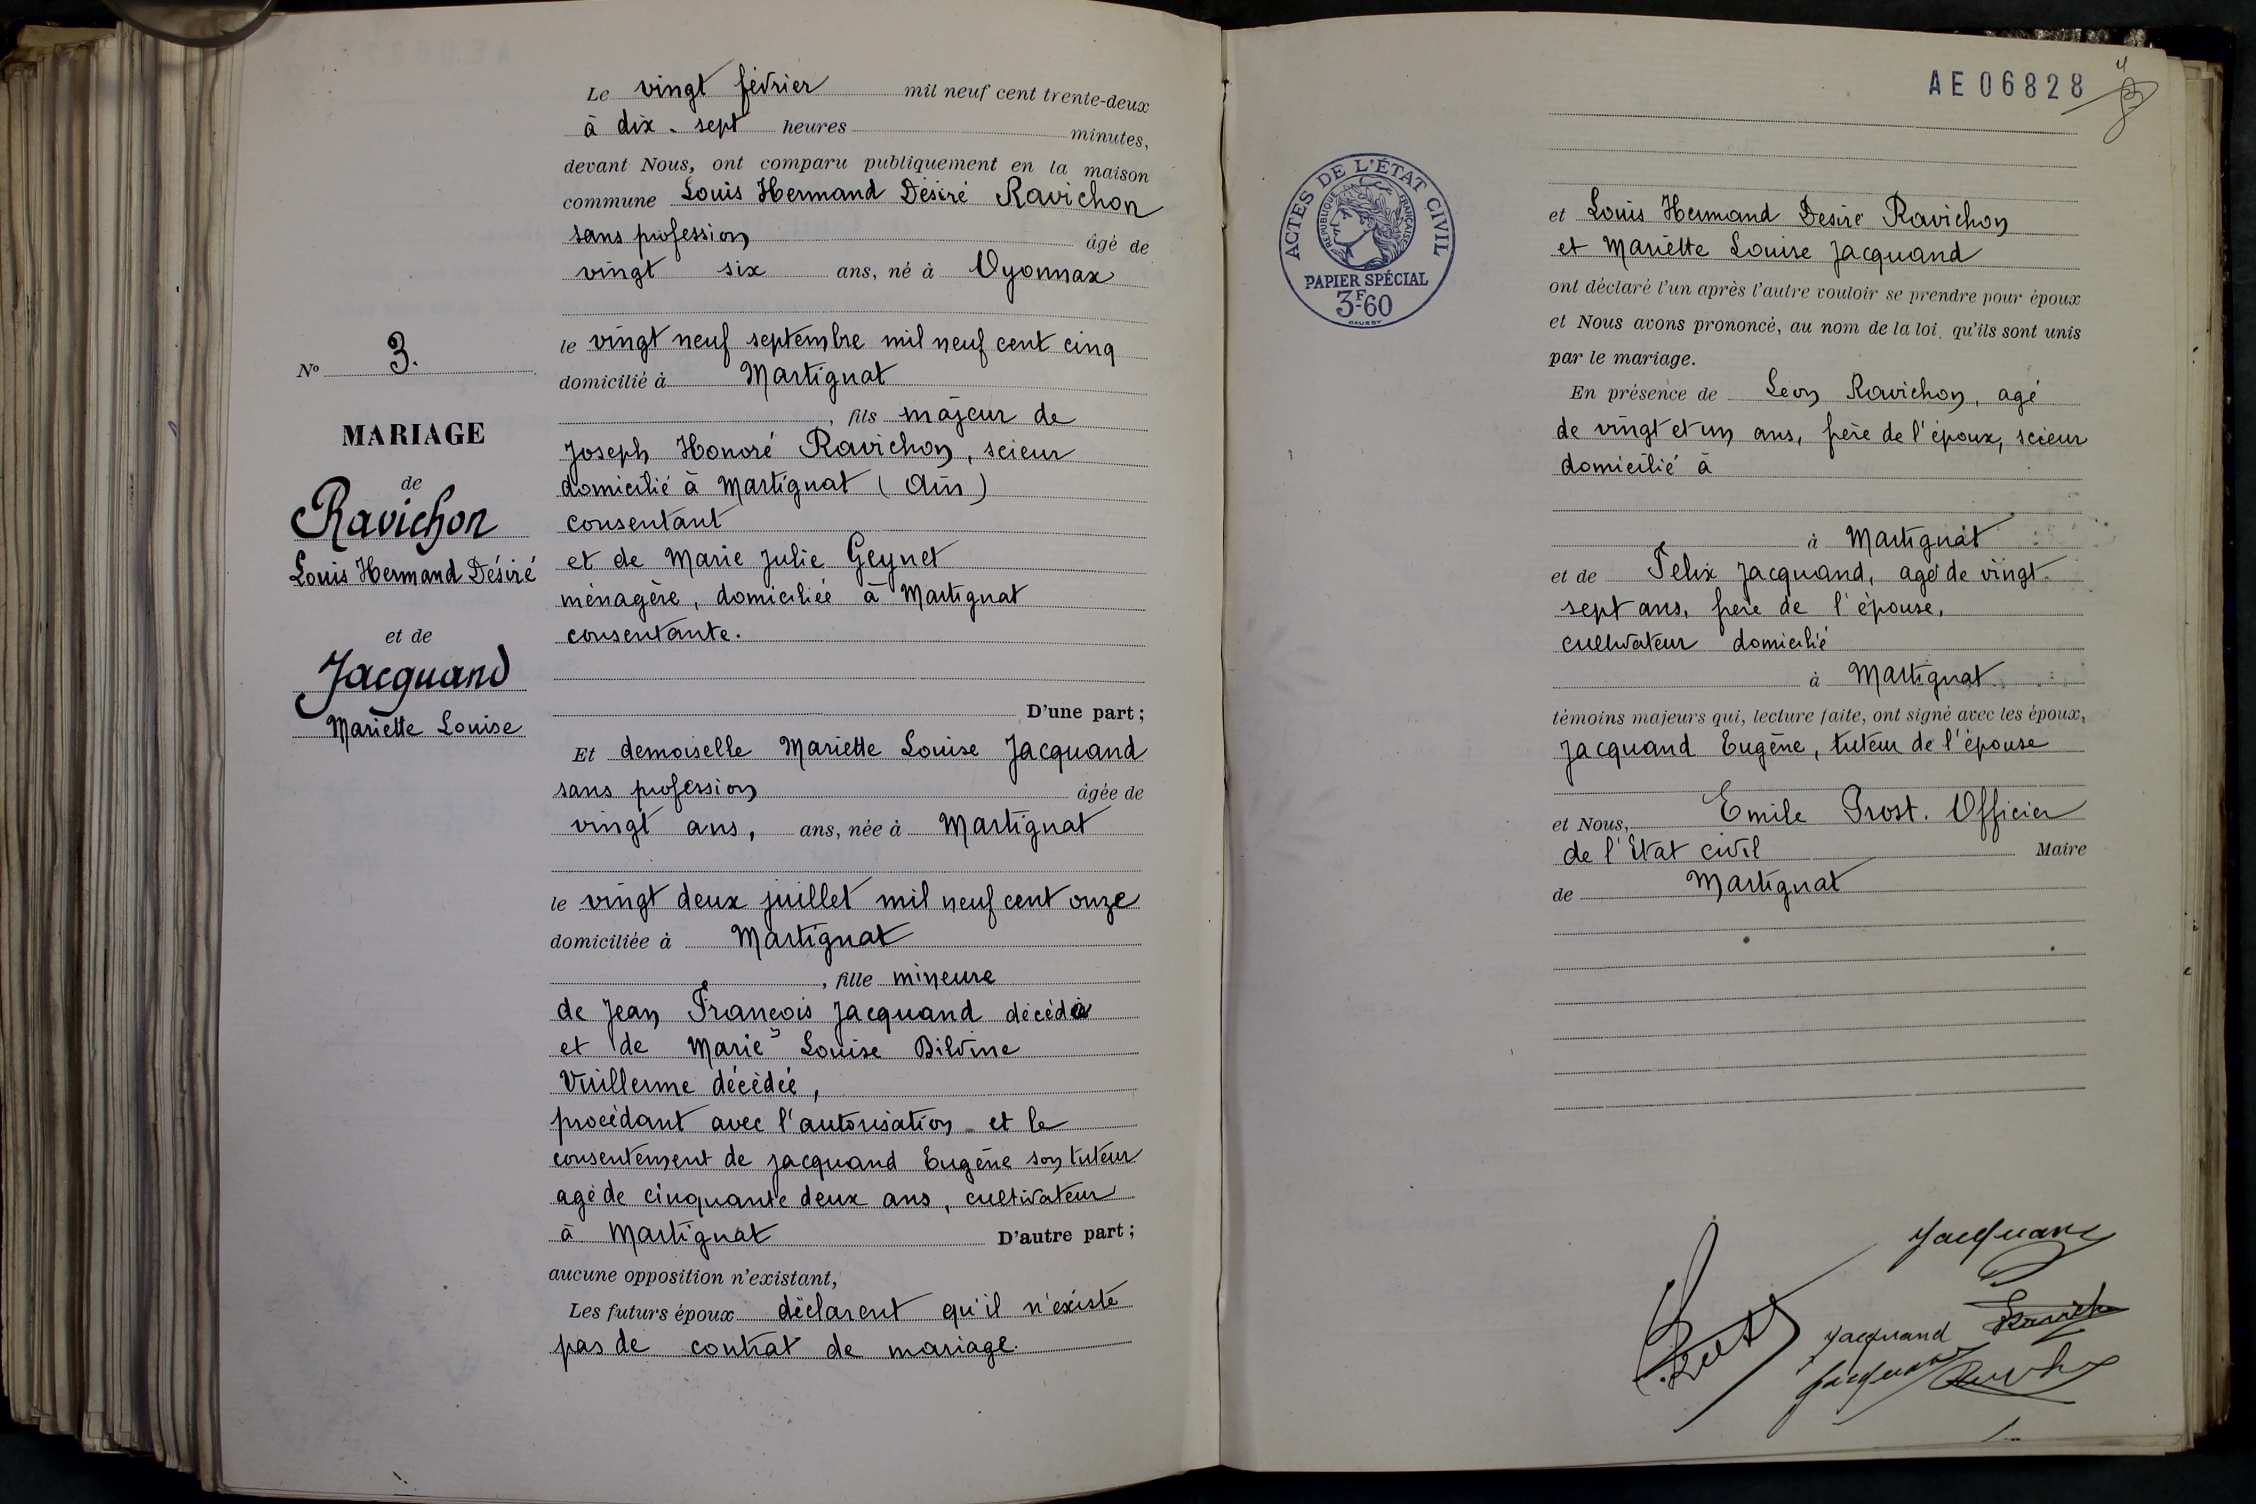 Le vingt février mil neuf cent trente-deux
à dix-sept heures minutes,
devant Nous, ont comparu publiquement en la maison
commune Louis Hermand Désiré Ravichon
sans profession âgé de
vingt six ans, né à Oyonnax
le vingt neuf septembre mil neuf cent cinq
domicilié à Martignat
, fils majeur de
Joseph Honoré Ravichon, scieur
domicilié à Martignat (Ain)
consentant
et de Marie Julie Geynet
ménagère, domiciliée à Martignat
consentante.
D'une part;
Et demoiselle Mariette Louise Jacquand
sans profession âgée de
vingt ans, ans, née à Martignat
le vingt deux juillet mil neuf cent onze
domiciliée à Martignat
, fille mineure
de Jean François Jacquand décédé
et de Marie Louise
Vuillerme décédée,
procédant avec l'autorisation et le
consentement de Jacquand Eugène son tuteur
agé de cinquante deux ans, cultivateur
à Martignat D'autre part;
aucune opposition n'existant,
Les futurs époux déclarent qu'il n'existe
pas de contrat de mariage.
No 3.
MARIAGE
de
Ravichon
Louis Hermand Désiré
et de
Jacquand
Mariette Louise
AE 06828
4
ACTES DE L'ÉTAT CIVIL
RÉPUBLIQUE FRANÇAISE
PAPIER SPÉCIAL
3F60
et Louis Hermand Desiré Ravichon
et Mariette Louise Jacquand
ont déclaré l'un après l'autre vouloir se prendre pour époux
et Nous avons prononcé, au nom de la loi, qu'ils sont unis
par le mariage.
En présence de Léon Ravichon, agé
de vingt et un ans, frère de l'époux, scieur
domicilié à
à Martignat
et de Felix Jacquand, agé de vingt
sept ans, frère de l'épouse,
cultivateur domicilié
à Martignat
témoins majeurs qui, lecture faite, ont signé avec les époux,
Jacquand Eugène, tuteur de l'épouse
et Nous, Emile Prost. Officier
de l'Etat civil Maire
de Martignat
Jacquand
Prost
Jacquand
Jacquand